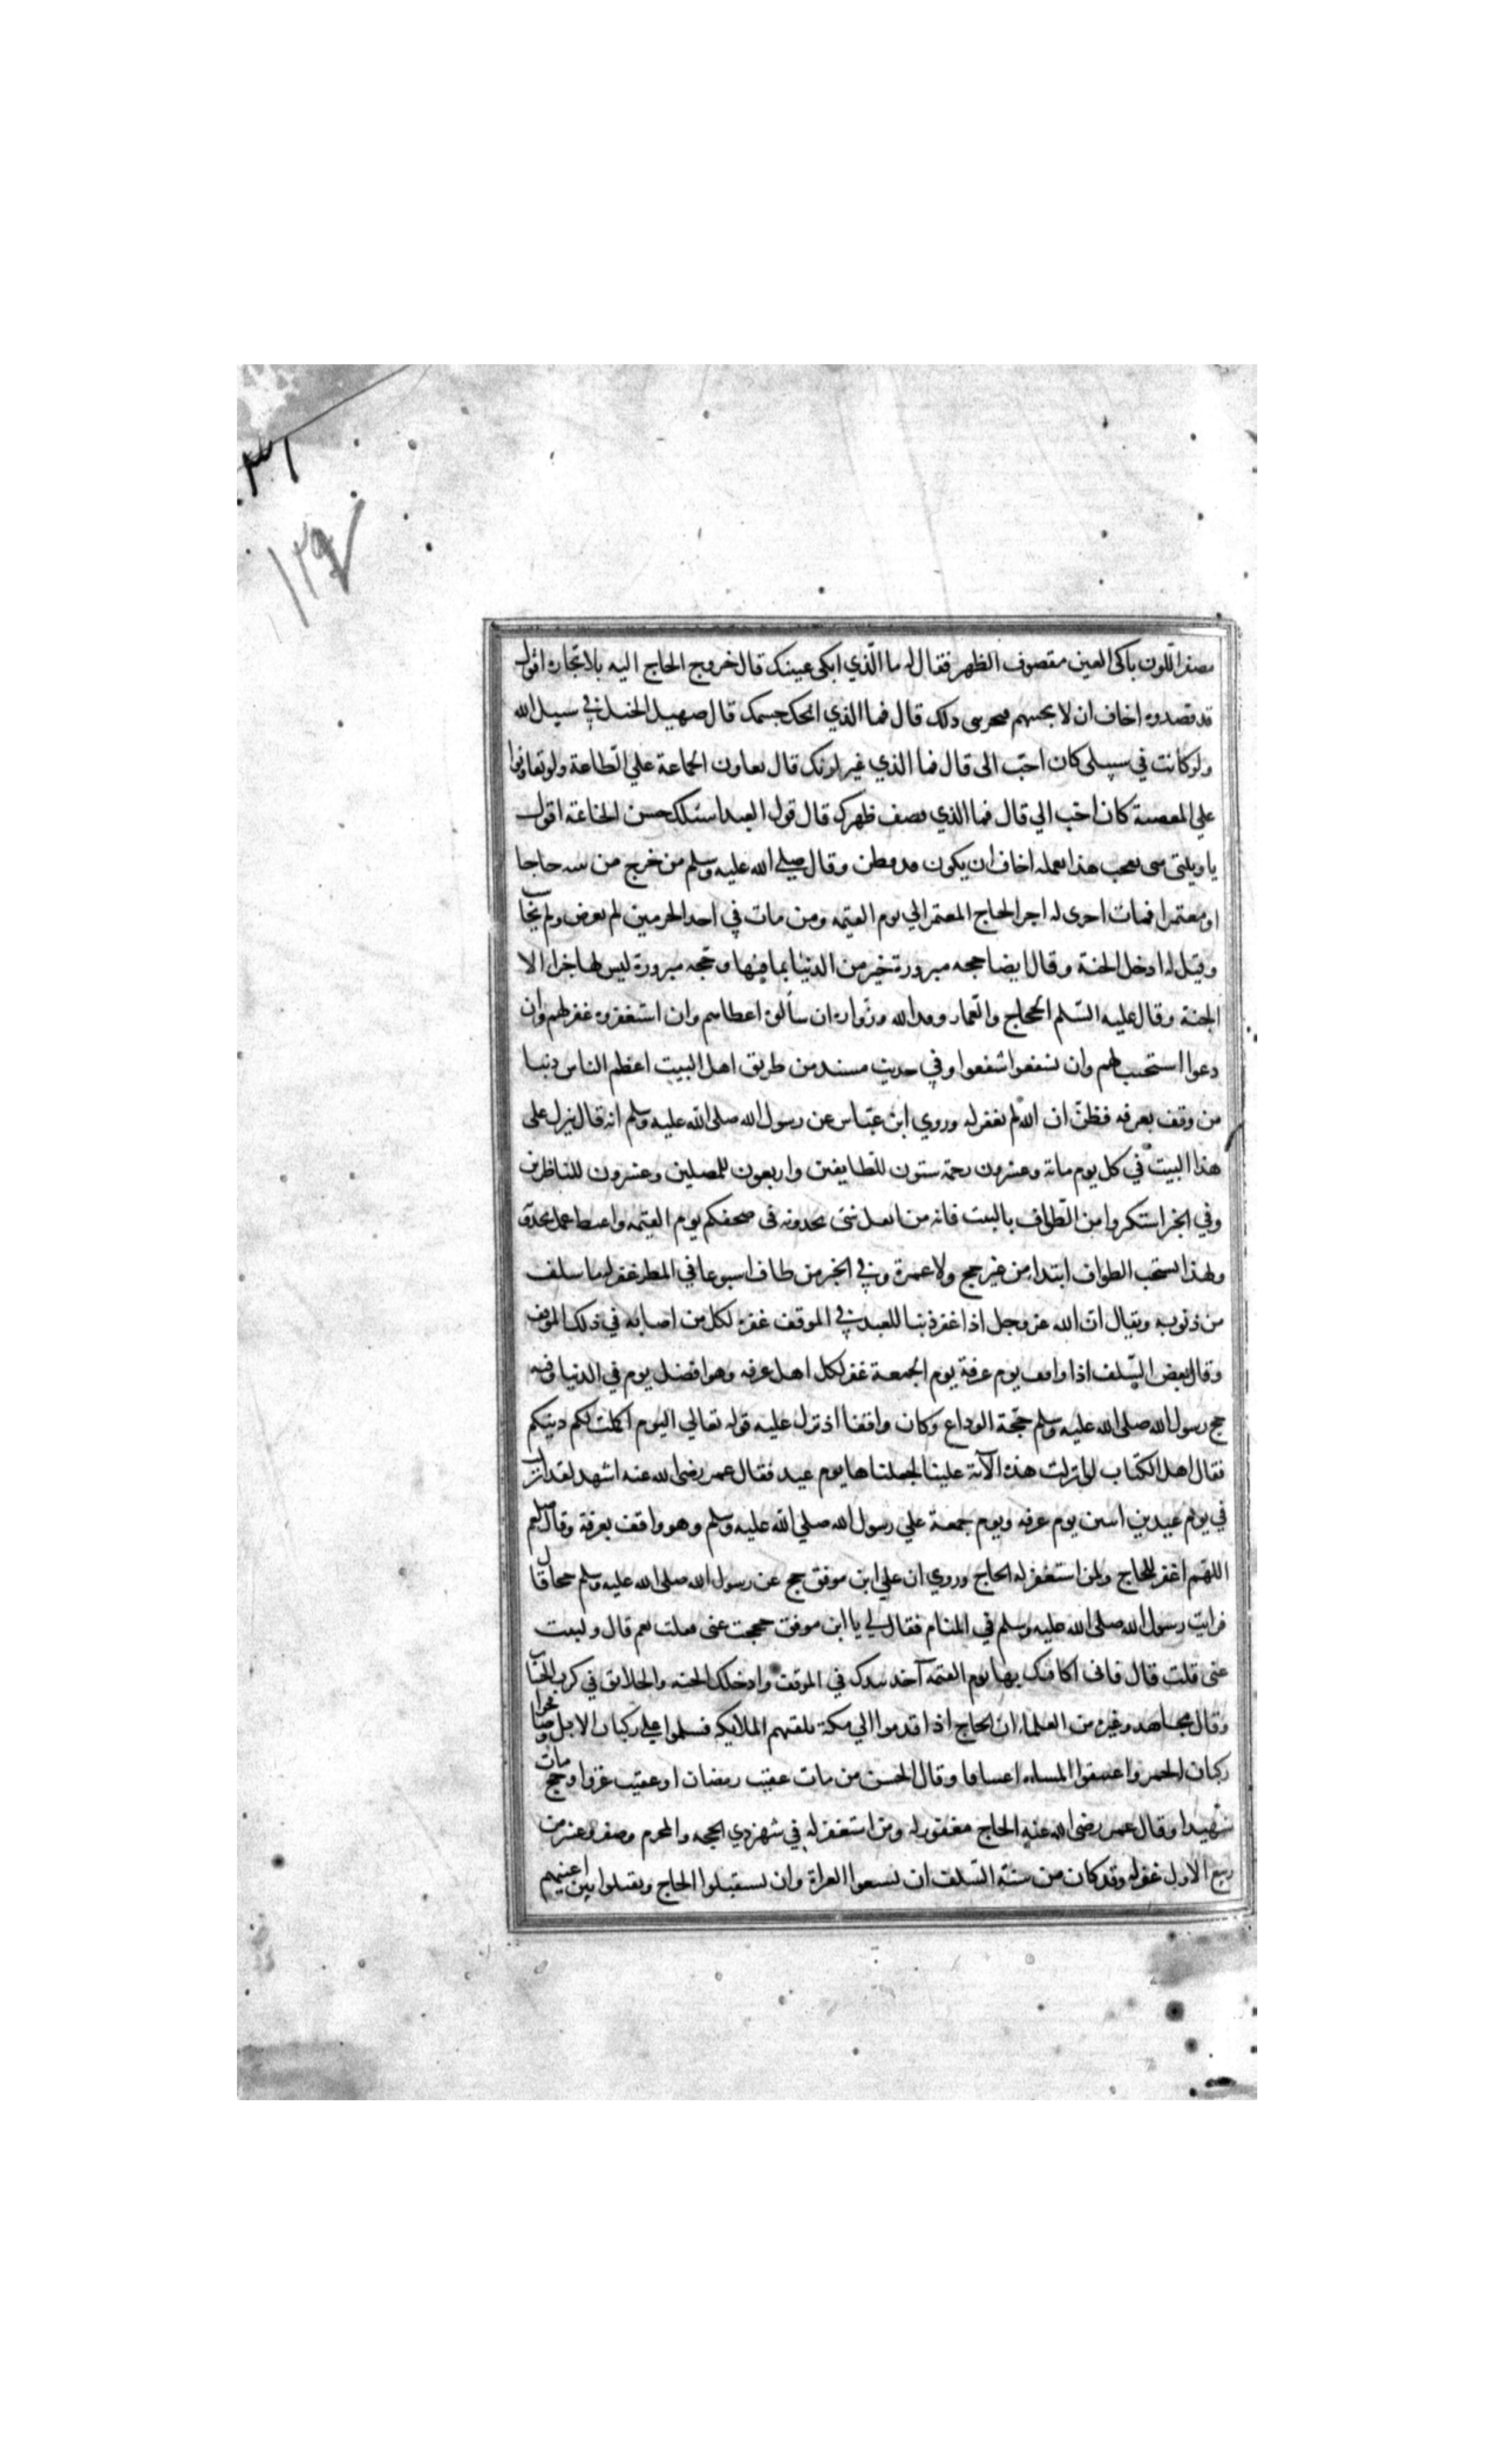 ١٣٩٧
مصفر اللون باكى العين مقصوف الظهر فقال له ما الذي ابكى عينك قال خروج الحاج اليه بلا تجارة اقول
قد قصدوه اخاف ان لا يخيبهم فيحزنى ذلك قال فما الذي انحل جسمك قال صهيل الخيل في سبيل الله
ولو كانت في سبيلى كان احب الى قال فما الذي غير لونك قال تعاون الجماعة علي الطاعة ولو تعاونوا
علي المعصية كان احب الي قال فما الذي قصف ظهرك قال قول العبد اسئلك حسن الخاتمة اقول
يا ويلتى متى يعجب هذا بعمله اخاف ان يكون قد فطن وقال صلي الله عليه وسلم من خرج من بيته حاجا
او معتمرا فمات اجرى له اجر الحاج المعتمر الي يوم القيمه ومن مات في احد الحرمين لم يعرض ولم يحاسب
وقيل له ادخل الجنة وقال ايضا حجه مبرورة خير من الدنيا بما فيها وحجه مبرورة ليس لها جزاء الا
الجنة وقال عليه السلم الحجاج والعمار وفد الله وزواره ان سألوه اعطاهم وان استغفروه غفر لهم وان
دعوا استجيب لهم وان شفعوا شفعوا وفي حديث مسند من طريق اهل البيت اعظم الناس ذنبا
من وقف بعرفه فظن ان الله لم يغفر له وروي ابن عباس عن رسول الله صلى الله عليه وسلم انه قال ينزل على
هذا البيت في كل يوم مائة وعشرون رحمة ستون للطايفين واربعون للمصلين وعشرون للناظرين
وفي الخبر استكثروا من الطواف بالبيت فانه من اقل شئ تجدونه فى صحفكم يوم القيمه واغبط عمل تجدونه
ولهذا يستحب الطواف ابتداء من غير حج ولا عمرة وفي الخبر من طاف اسبوعا في المطر غفر له ما سلف
من ذنوبه ويقال ان الله عز وجل اذا غفر ذنبا للعبد في الموقف غفره لكل من اصابه في ذلك الموقف
وقال بعض السلف اذا وافق يوم عرفة يوم الجمعة غفر لكل اهل عرفه وهو افضل يوم في الدنيا وفيه
حج رسول الله صلى الله عليه وسلم حجة الوداع وكان واقفا اذ نزل عليه قوله تعالي اليوم اكملت لكم دينكم
فقال اهل الكتاب لو انزلت هذه الآية علينا لجعلناها يوم عيد فقال عمر رضى الله عنه اشهد لقد انزلت
في يوم عيدين اثنين يوم عرفه ويوم جمعة علي رسول الله صلي الله عليه وسلم وهو واقف بعرفة وقال صلعم
اللهم اغفر للحاج ولمن استغفر له الحاج وروي ان علي ابن موفق حج عن رسول الله صلى الله عليه وسلم حجا قال
فرايت رسول الله صلى الله عليه وسلم في المنام فقال لي يا ابن موفق حججت عنى فقلت نعم قال ولبيت
عنى قلت قال فانى اكافيك بها يوم القيمه آخذ بيدك في الموقف وادخلك الجنه والخلايق في كرب الحساب
وقال مجاهد وغيره من العلماء ان الحاج اذا قدموا الي مكة تلقتهم الملايكه فسلموا علي ركبان الابل وصافحوا
ركبان الحمر واعتنقوا المشاه اعتناقا وقال الحسن من مات عقيب رمضان او عقيب غزو او حج مات
شهيدا وقال عمر رضى الله عنه الحاج مغفور له ومن استغفر له في شهر ذي الحجه والمحرم وصفر وعشر من
ربيع الاول غفر له وقد كان من سنة السلف ان يشيعوا الغزاة وان يستقبلوا الحاج ويقبلوا بين اعينهم